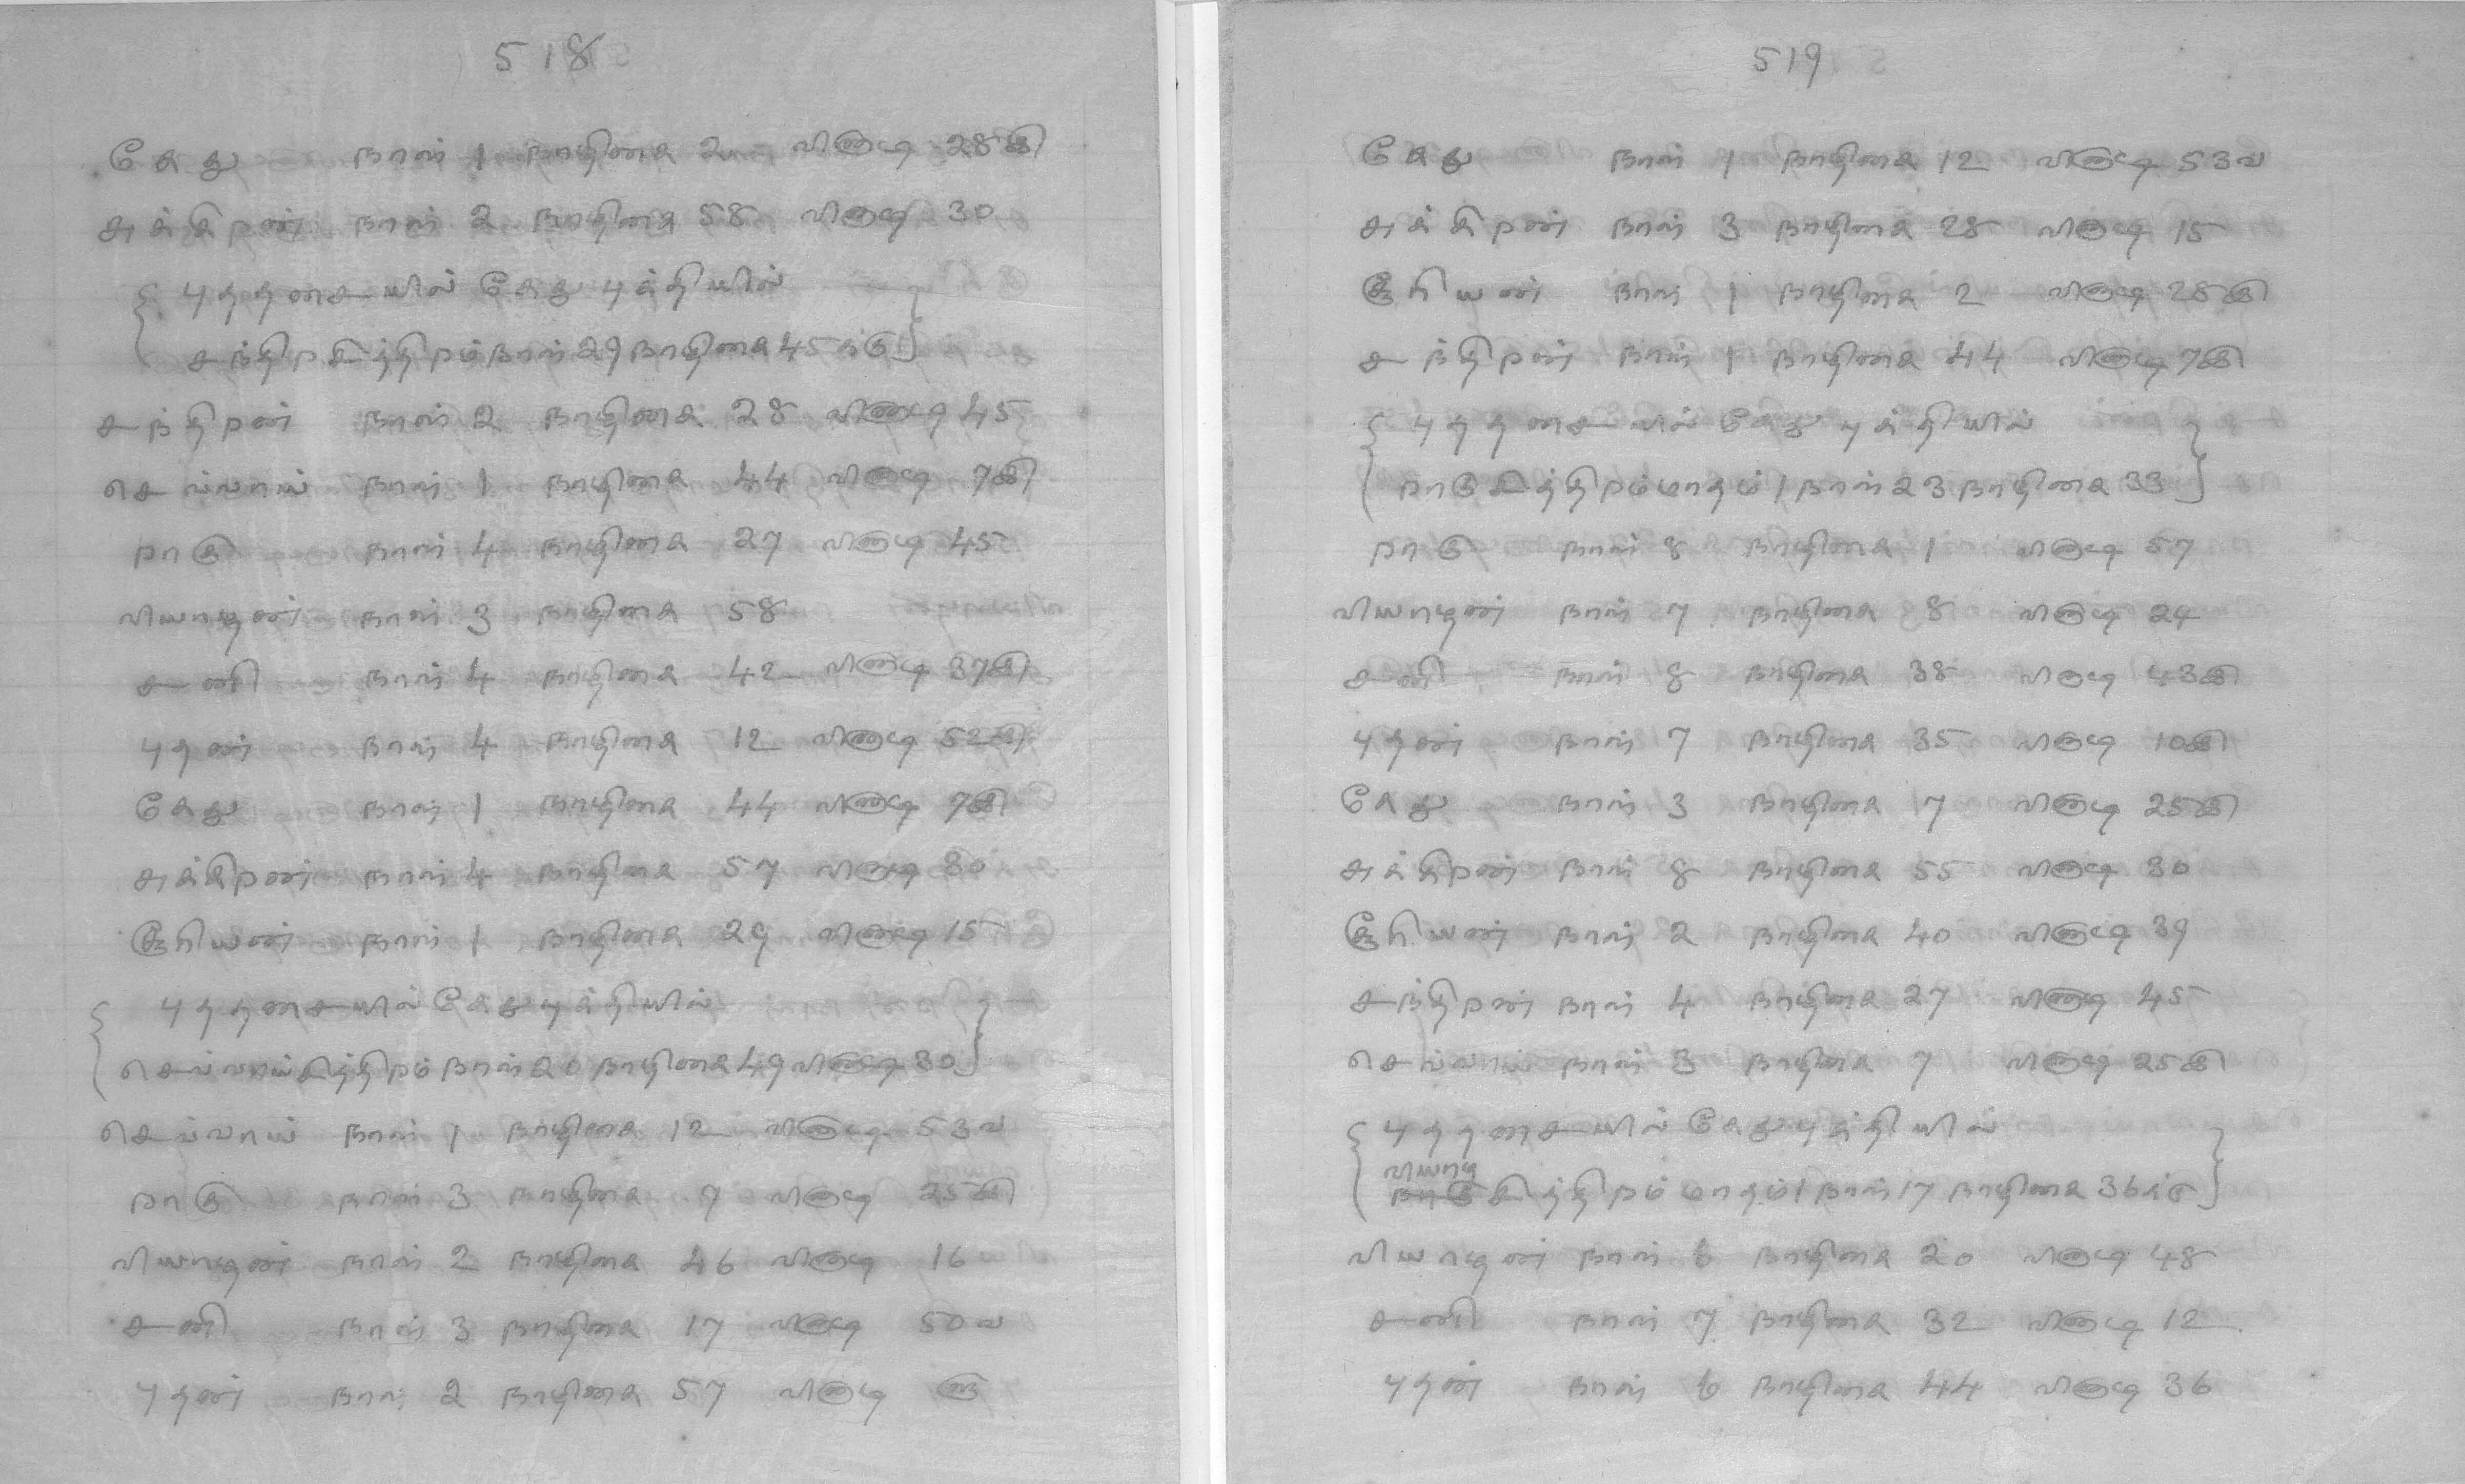 518
கேது நாள் 1 நாழிகை 2 வினாடி 28இ
சுக்கிரன் நாள் 2 நாழிகை 58 வினாடி 30
{ புததசையில் கேது புக்தியில்
சந்திரசித்திரம் நாள் 29 நாழிகை 45க்கு }
சந்திரன் நாள் 2 நாழிகை 28 வினாடி 45
செவ்வாய் நாள் 1 நாழிகை 44 வினாடி 7இ
ராகு நாள் 4 நாழிகை 27 வினாடி 45
வியாழன் நாள் 3 நாழிகை 58
சனி நாள் 4 நாழிகை 42 வினாடி 37இ
புதன் நாள் 4 நாழிகை 12 வினாடி 52இ
கேது நாள் 1 நாழிகை 44 வினாடி 7இ
சுக்கிரன் நாள் 4 நாழிகை 57 வினாடி 30
சூரியன் நாள் 1 நாழிகை 29 வினாடி 15
{ புததசையில் கேது புக்தியில்
செவ்வாய்சித்திரம் நாள் 20 நாழிகை 49 வினாடி 30 }
செவ்வாய் நாள் 1 நாழிகை 12 வினாடி 53வ
ராகு நாள் 3 நாழிகை 7 வினாடி 25இ
வியாழன் நாள் 2 நாழிகை 46 வினாடி 16
சனி நாள் 3 நாழிகை 17 வினாடி 50வ
புதன் நாள் 2 நாழிகை 57 வினாடி
519
கேது நாள் 1 நாழிகை 12 வினாடி 53வ
சுக்கிரன் நாள் 3 நாழிகை 28 வினாடி 15
சூரியன் நாள் 1 நாழிகை 2 வினாடி 28இ
சந்திரன் நாள் 1 நாழிகை 44 வினாடி 7இ
{ புததசையில் கேது புக்தியில்
ராகுசித்திரம் மாதம் 1 நாள் 23 நாழிகை 33 }
ராகு நாள் 8 நாழிகை 1 வினாடி 57
வியாழன் நாள் 7 நாழிகை 8 வினாடி 24
சனி நாள் 8 நாழிகை 38 வினாடி 43இ
புதன் நாள் 7 நாழிகை 35 வினாடி 10இ
கேது நாள் 3 நாழிகை 17 வினாடி 25இ
சுக்கிரன் நாள் 8 நாழிகை 55 வினாடி 30
சூரியன் நாள் 2 நாழிகை 40 வினாடி 39
சந்திரன் நாள் 4 நாழிகை 27 வினாடி 45
செவ்வாய் நாள் 3 நாழிகை 7 வினாடி 25இ
{ புததசையில் கேது புக்தியில்
வியாழ
ராகுசித்திரம் மாதம் 1 நாள் 17 நாழிகை 36க்கு }
வியாழன் நாள் 6 நாழிகை 20 வினாடி 48
சனி நாள் 7 நாழிகை 32 வினாடி 12
புதன் நாள் 6 நாழிகை 44 வினாடி 36